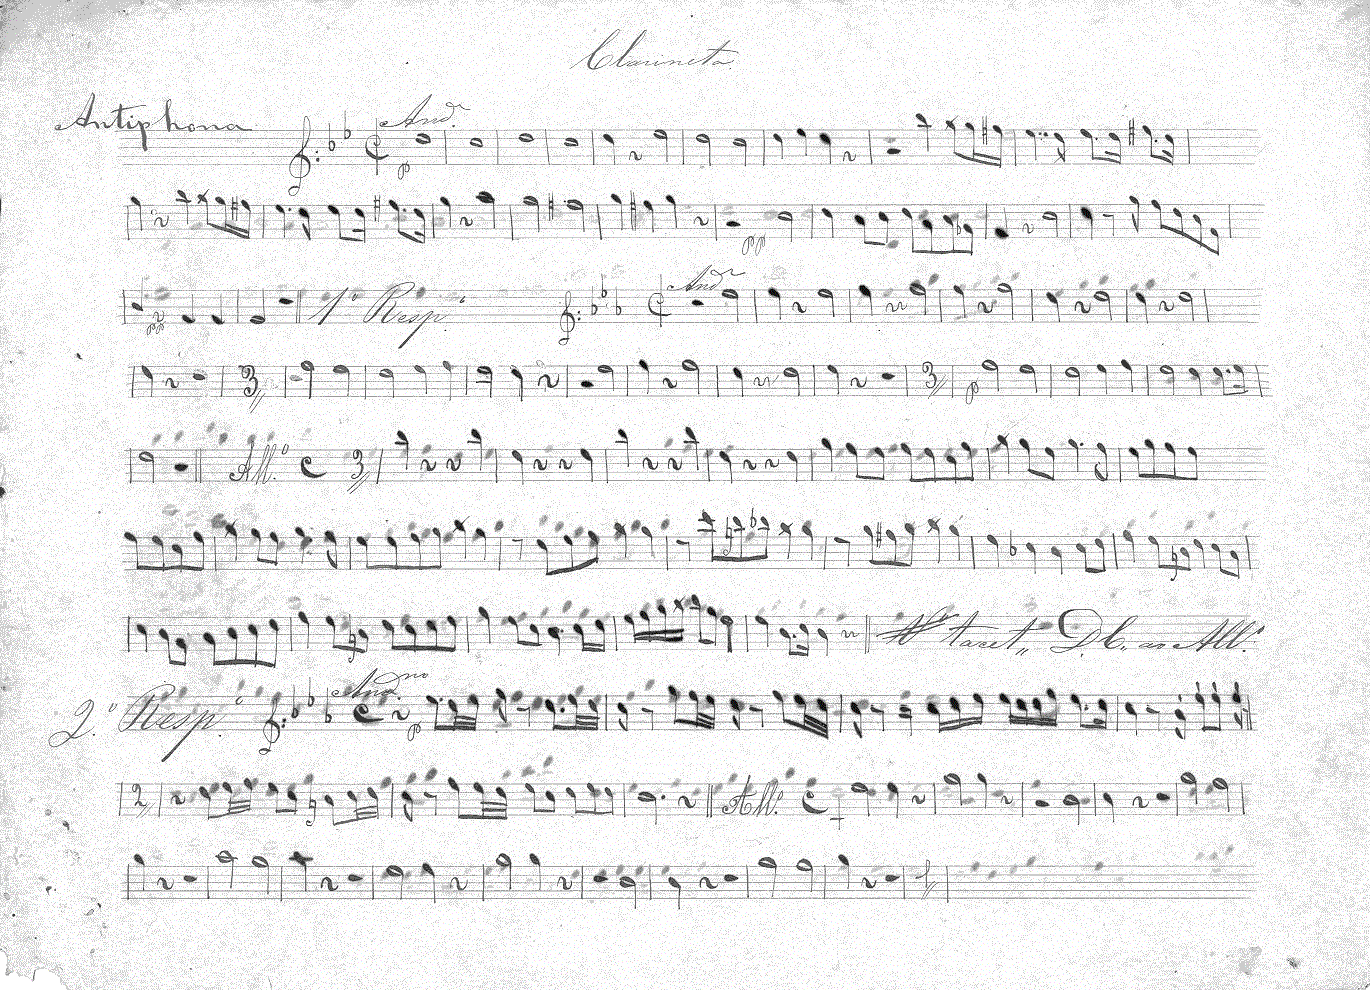 Clarineta
Antiphona Andᵉ
p
pp
pp 1º Resp.º Andᵉ
3 3 p
All.º 3
Nº tacet,, D.C. ao All.º
2.º Resp.º And.no p
2 All.º
1